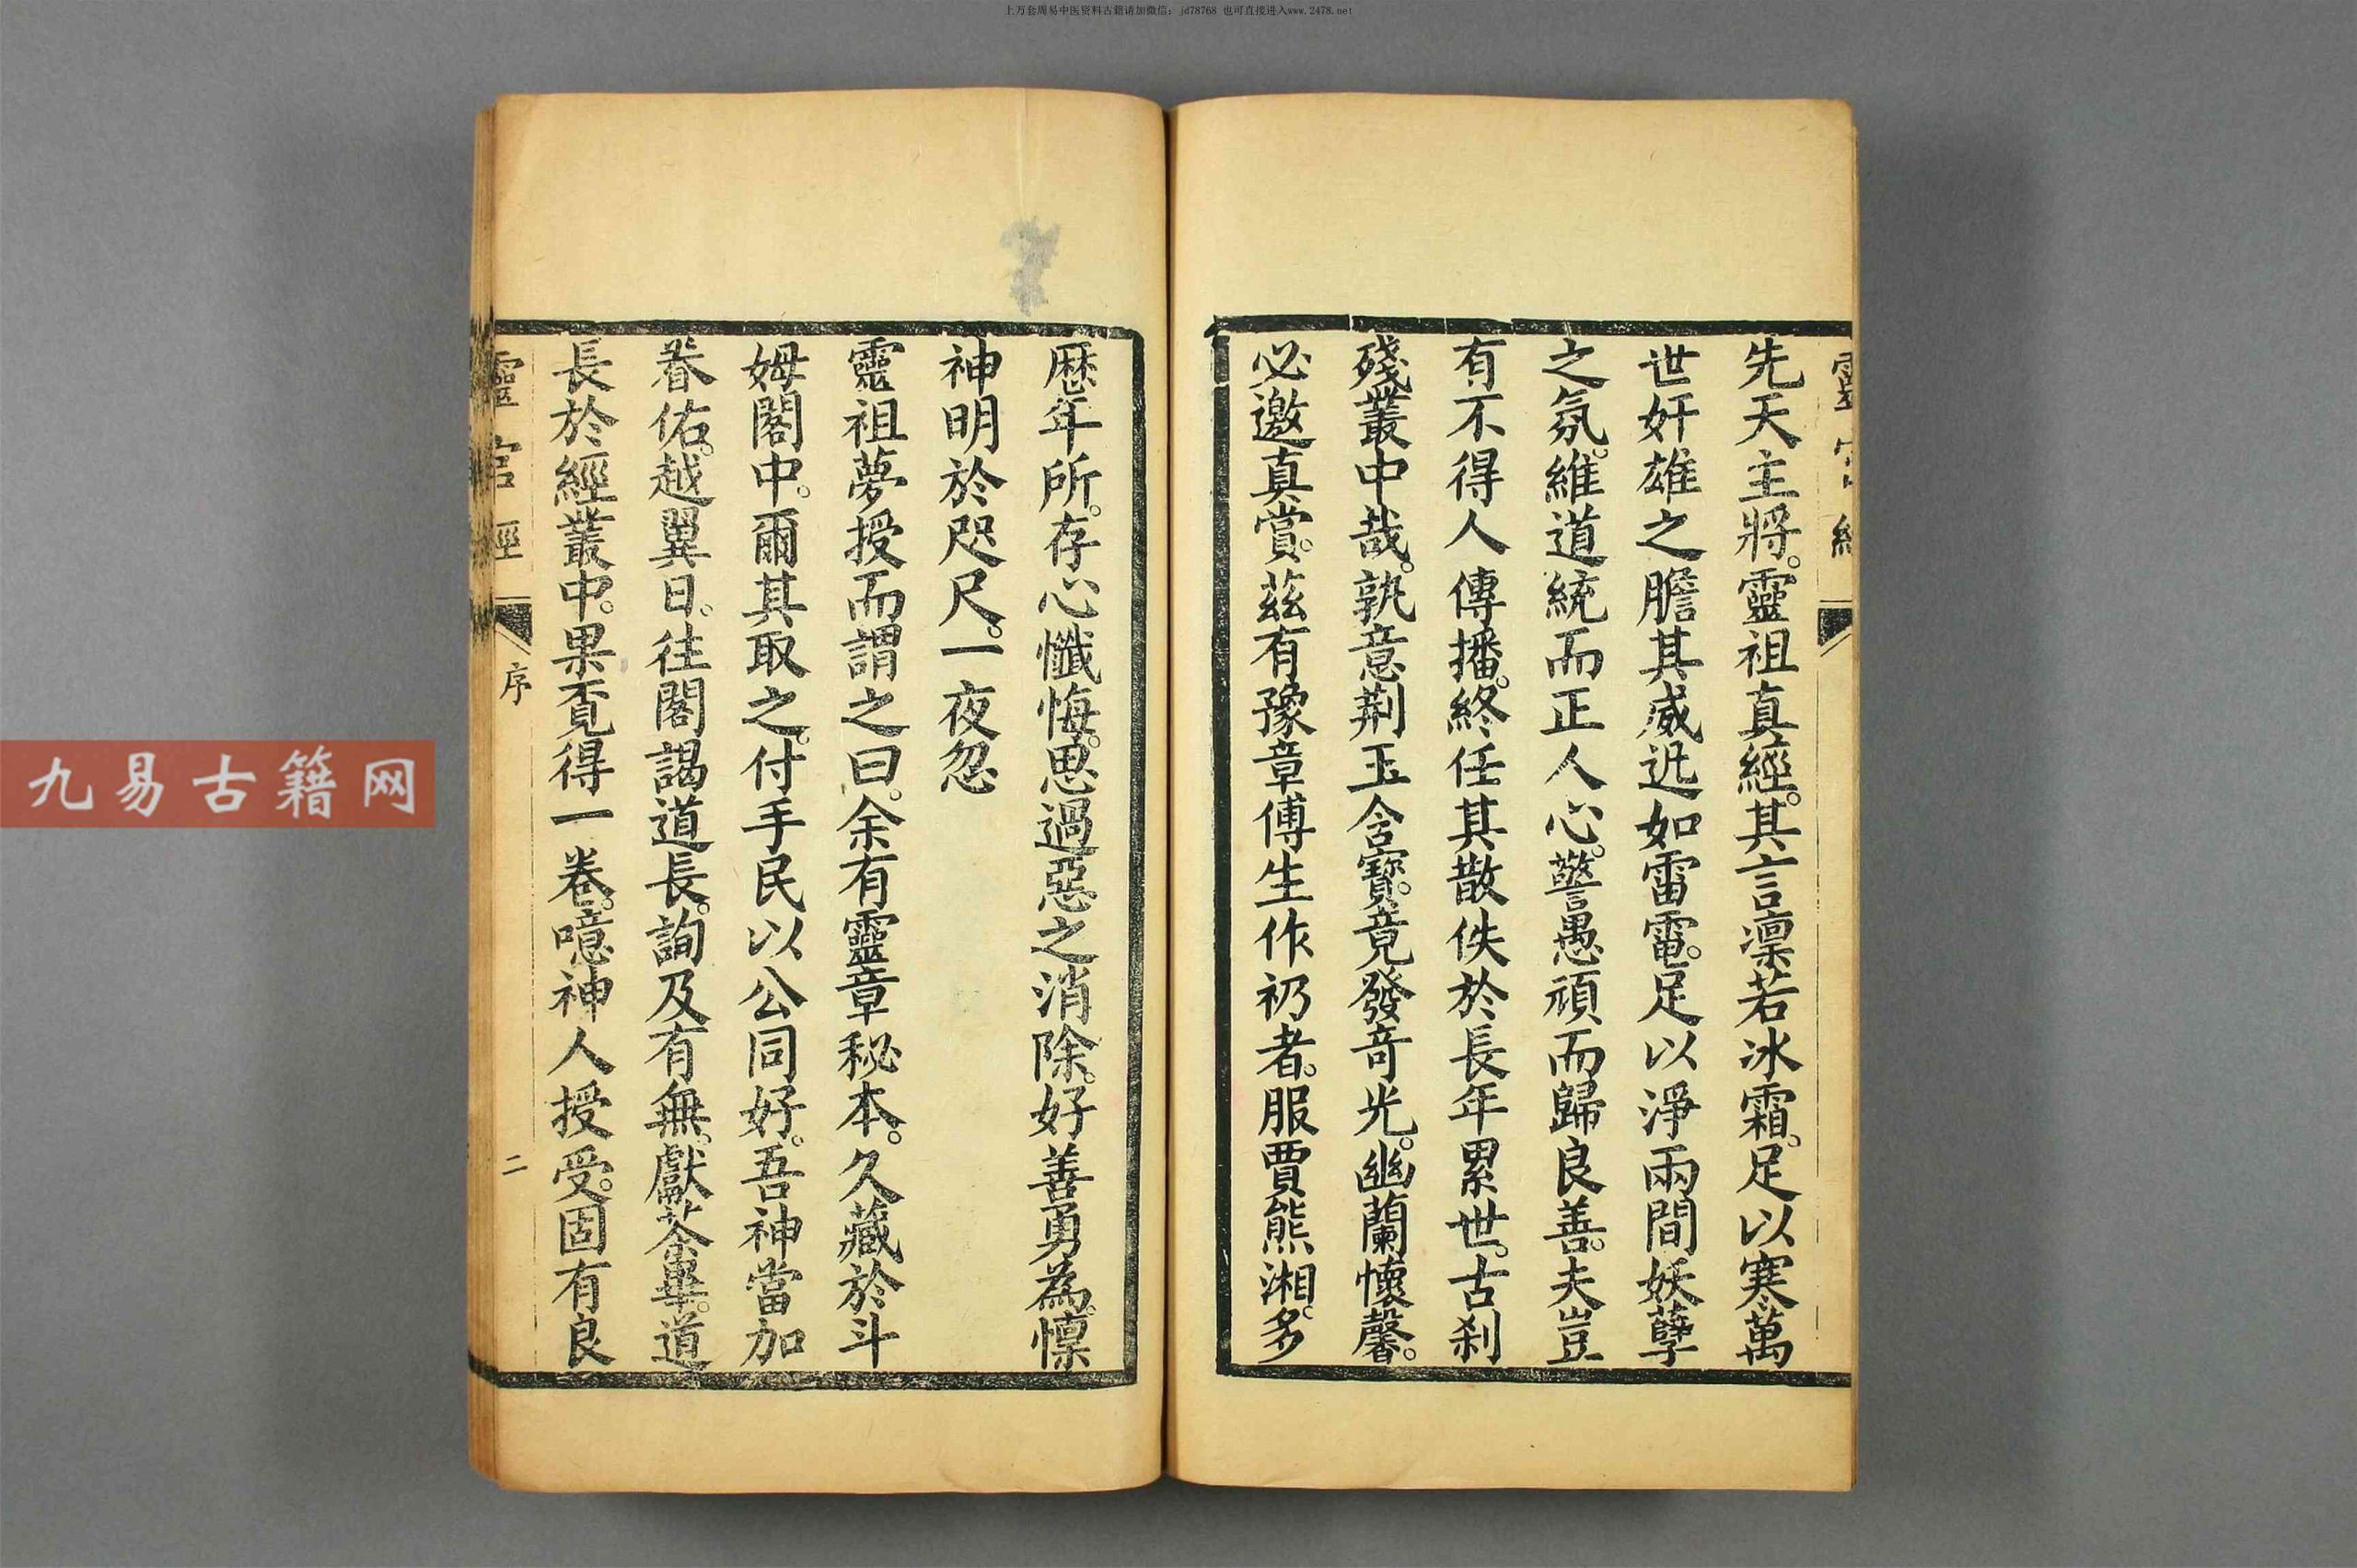 上万套周易中医资料古籍请加微信：jd78768 也可直接进入www.2478.net
先天主將。靈祖真經。其言凛若冰霜。足以寒萬
世奸雄之膽其威迅如雷電。足以淨兩間妖孽
之氛。維道統而正人心。警愚頑而歸良善。夫豈
有不得人傳播。終任其散佚於長年累世。古刹
殘叢中哉。孰意荆玉含寶。竟發奇光。幽蘭懷馨。
必邀真賞。茲有豫章傅生作礽者。服賈熊湘。多
歷年所。存心懺悔。思過惡之消除。好善勇為。懔
神明於咫尺。一夜忽
靈祖夢授而謂之曰。余有靈章秘本。久藏於斗
姆閣中。爾其取之。付手民以公同好。吾神當加
眷佑。越翼日。往閣謁道長。詢及有無。獻茶畢。道
長於經叢中。果覓得一卷。噫神人授受。固有良
靈官經
序
二
九易古籍网